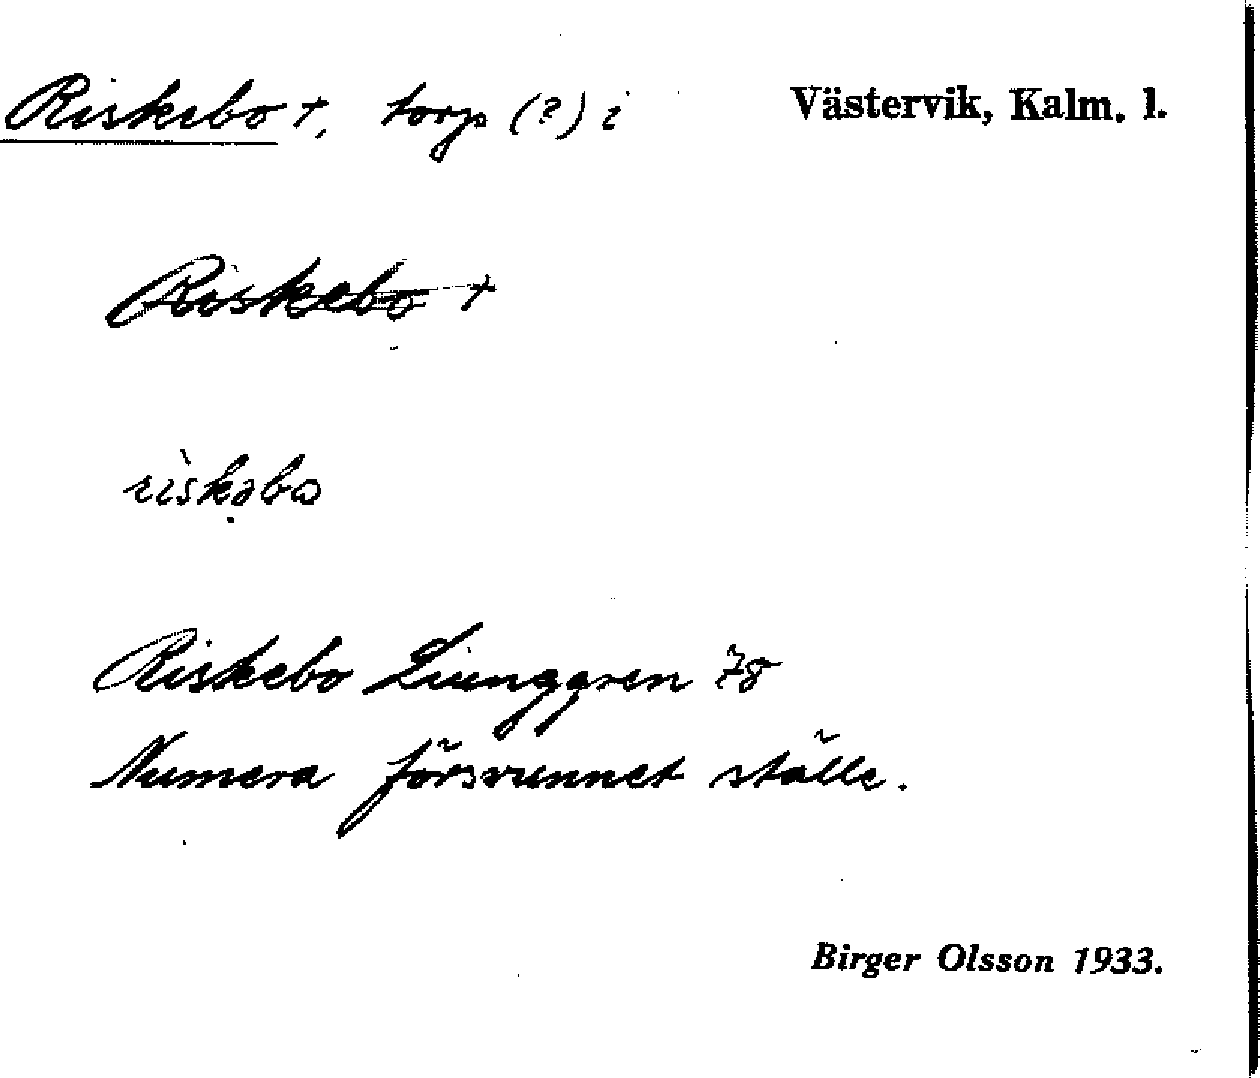 Riskebo +, torp (?) i Västervik, Kalm. l.
Riskebo +
rìskəbo
Riskebo Ljunggren 78
Numera försvunnet ställe.
Birger Olsson 1933.